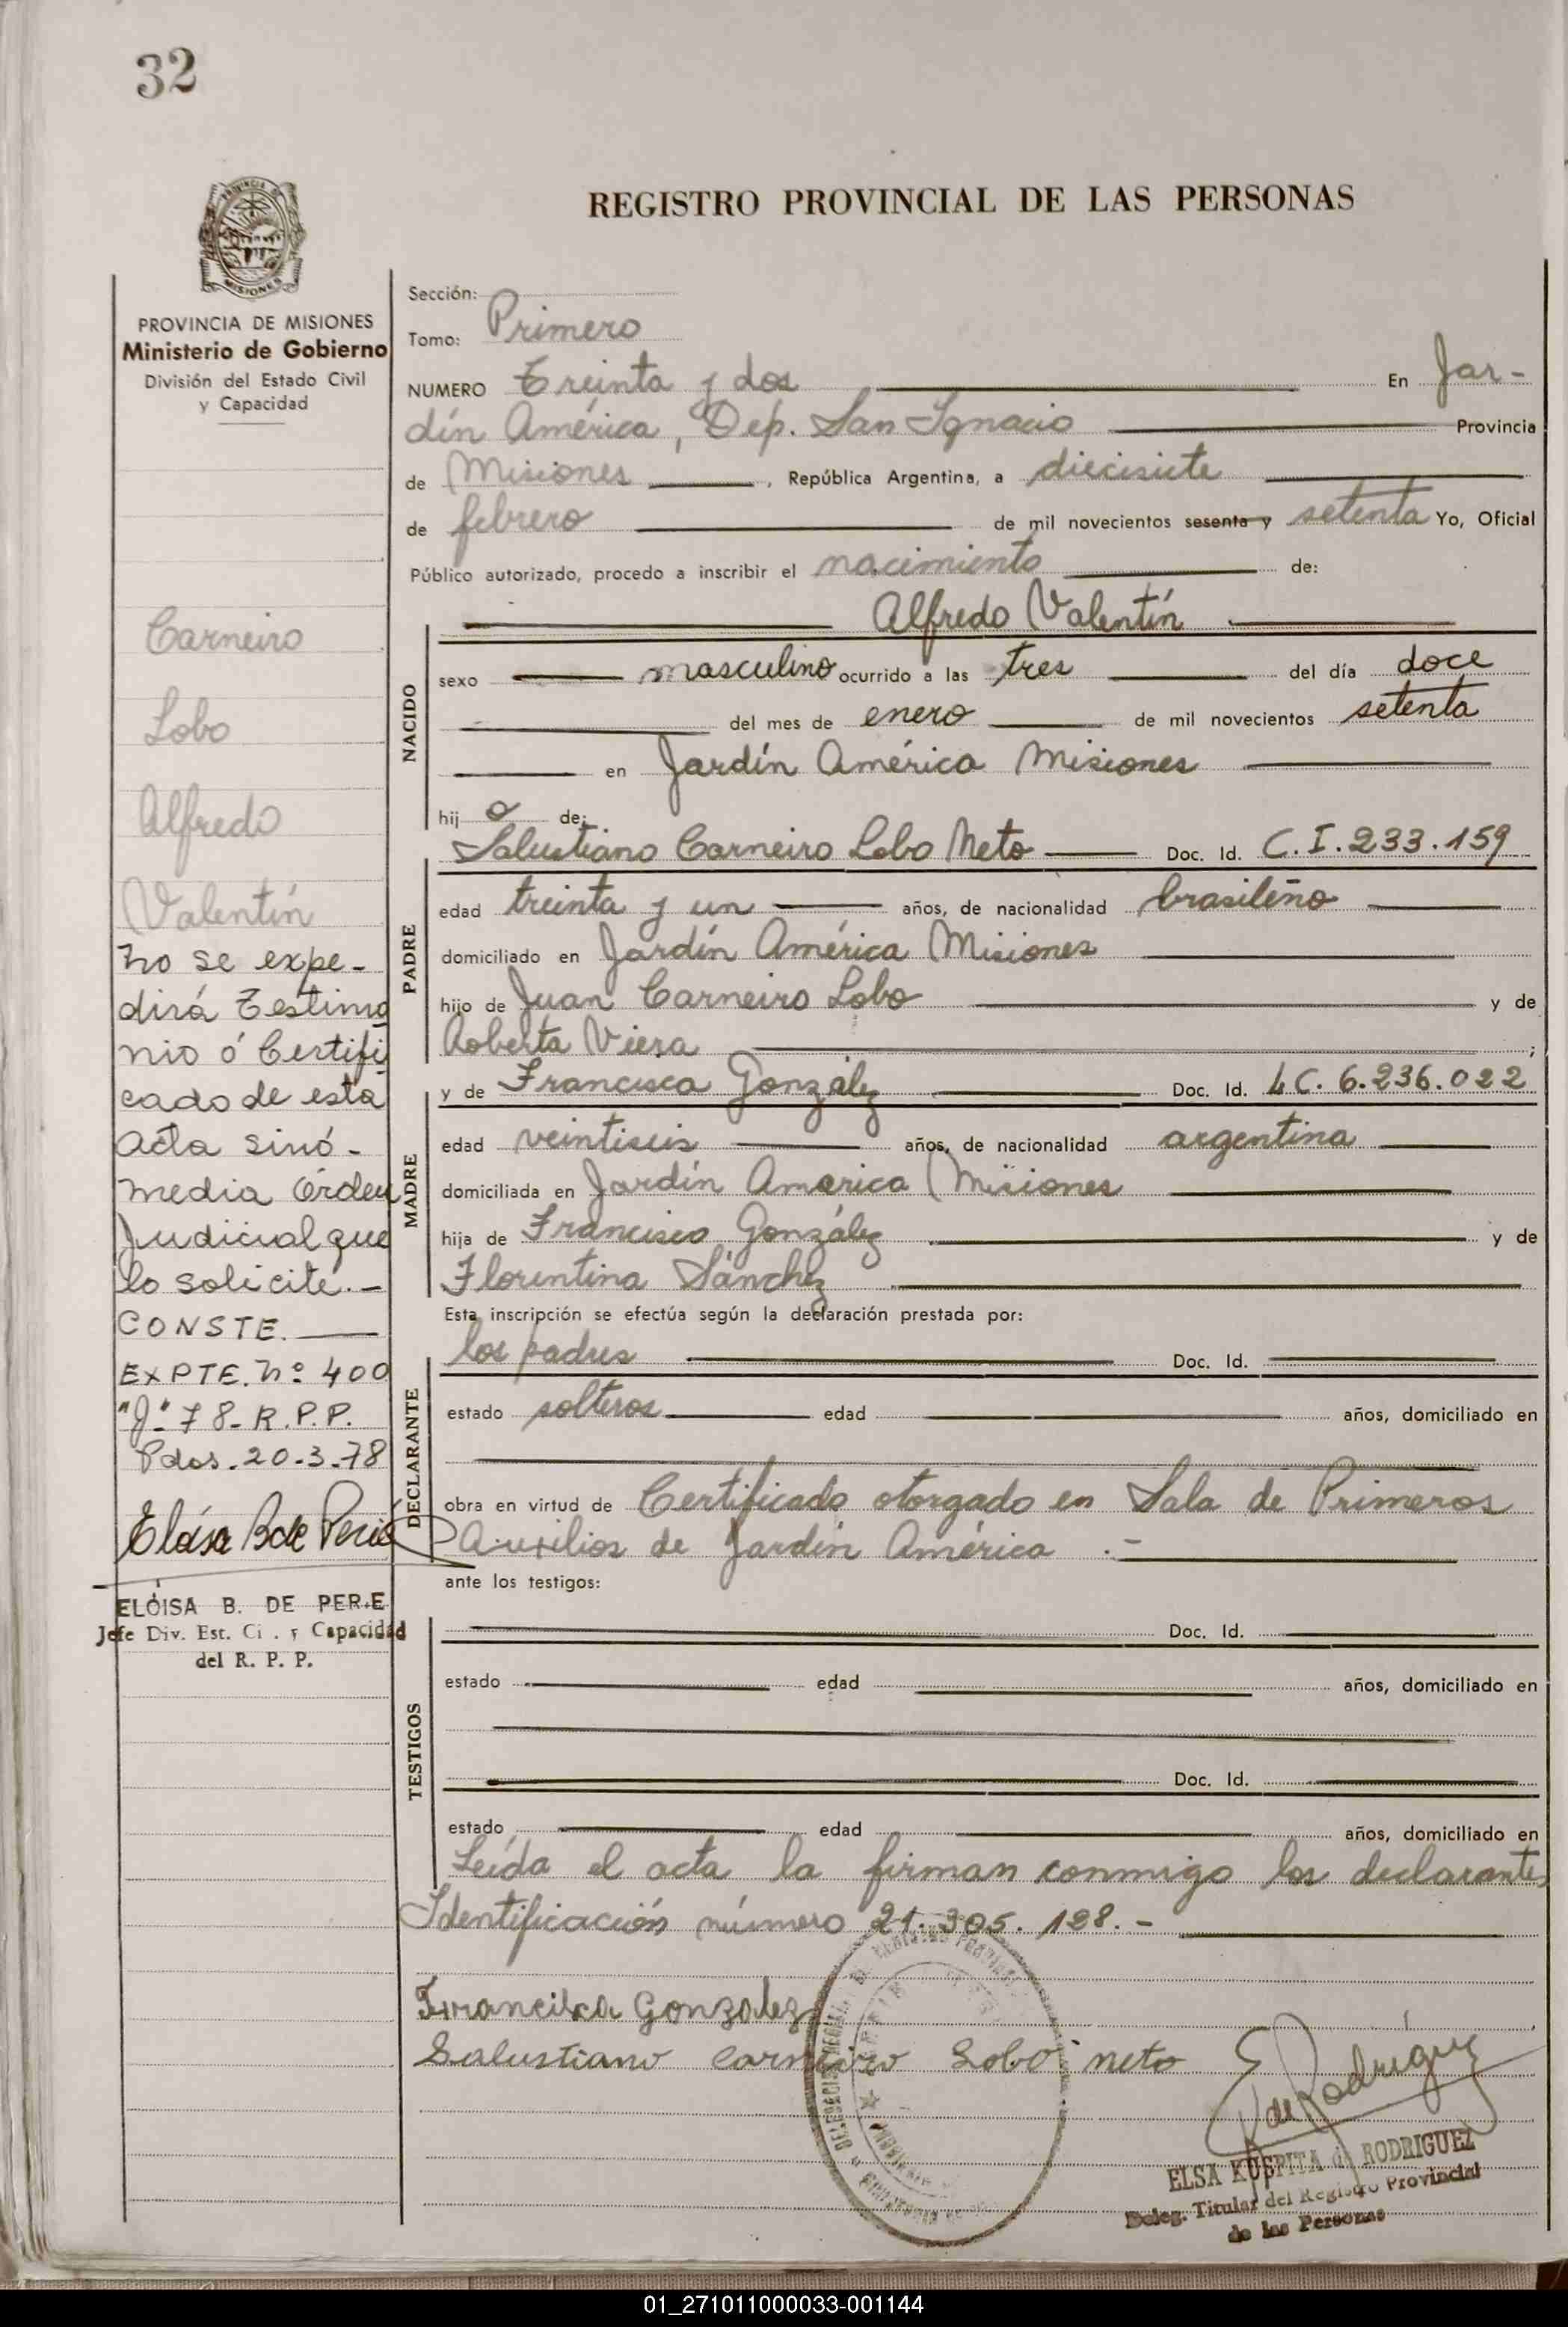 32
REGISTRO PROVINCIAL DE LAS PERSONAS
PROVINCIA DE MISIONES
MISIONES
Ministerio de Gobierno
División del Estado Civil
y Capacidad
Carneiro
Lobo
Alfredo
Valentín
No se expe-
dirá Testimo
nio ó Certifi
cado de esta
acta sinó -
media órden
Judicial que
lo solicite.-
CONSTE.
EXPTE. Nº 400
"J" 78- R.P.P.
Pdas. 20-3-78
ELOISA B. DE PERIE
Jefe Div. Est. Ci . y Capacidad
del R. P. P.
Sección:
Tomo: Primero
NUMERO Treinta y dos En Jar-
dín América, Dep. San Ignacio Provincia
de Misiones , República Argentina, a diecisiete
de febrero de mil novecientos sesenta y setenta Yo, Oficial
Público autorizado, procedo a inscribir el nacimiento de:
Alfredo Valentín
NACIDO
sexo masculino ocurrido a las tres del día doce
del mes de enero de mil novecientos setenta
en Jardín América Misiones
hij o de:
Salustiano Carneiro Lobo Neto Doc. Id. C.I. 233.159
PADRE
edad treinta y un años, de nacionalidad brasileño
domiciliado en Jardín América Misiones
hijo de Juan Carneiro Lobo y de
Roberta Viera ;
y de Francisca González Doc. Id. L.C. 6.236.022
MADRE
edad veintiseis años, de nacionalidad argentina
domiciliada en Jardín America Misiones
hija de Francisco González y de
Florentina Sánchez
Esta inscripción se efectúa según la declaración prestada por:
los padres Doc. Id.
DECLARANTE
estado solteros edad años, domiciliado en
obra en virtud de Certificado otorgado en Sala de Primeros
Auxilios de Jardín América .-
ante los testigos:
TESTIGOS
Doc. Id.
estado edad años, domiciliado en
Doc. Id.
estado edad años, domiciliado en
Leída el acta la firman conmigo los declarantes
Identificación número 21.305.128.-
Francisca Gonzalez
Salustiano Carneiro Lobo neto
E K de Rodríguez
ELSA KUSPITA de RODRIGUEZ
Deleg. Titular del Registro Provincial
de las Personas
01_271011000033-001144